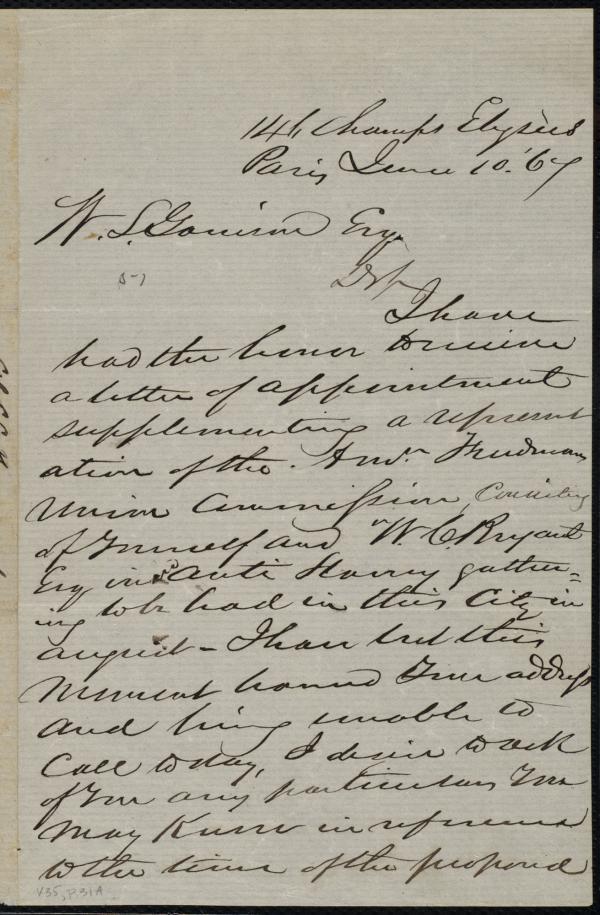 146 Champs Elysées
Paris June 10. '67
W. L. Garrison Esq.
Dr Sir
I have
had the honor to receive
a letter of appointment
supplementing a represent
ation of the Amn. Freedmans
Union Commission, Consisting
of Yourself and Wm. C. Bryant
Esq in an anti Slavery gather=
ing to be had in this City in
august - I have but this
moment learned Your address
and being unable to
Call to day, I desire to ask
of You any particulars You
may Know in reference
to the time of the proposed
V35, P.31A